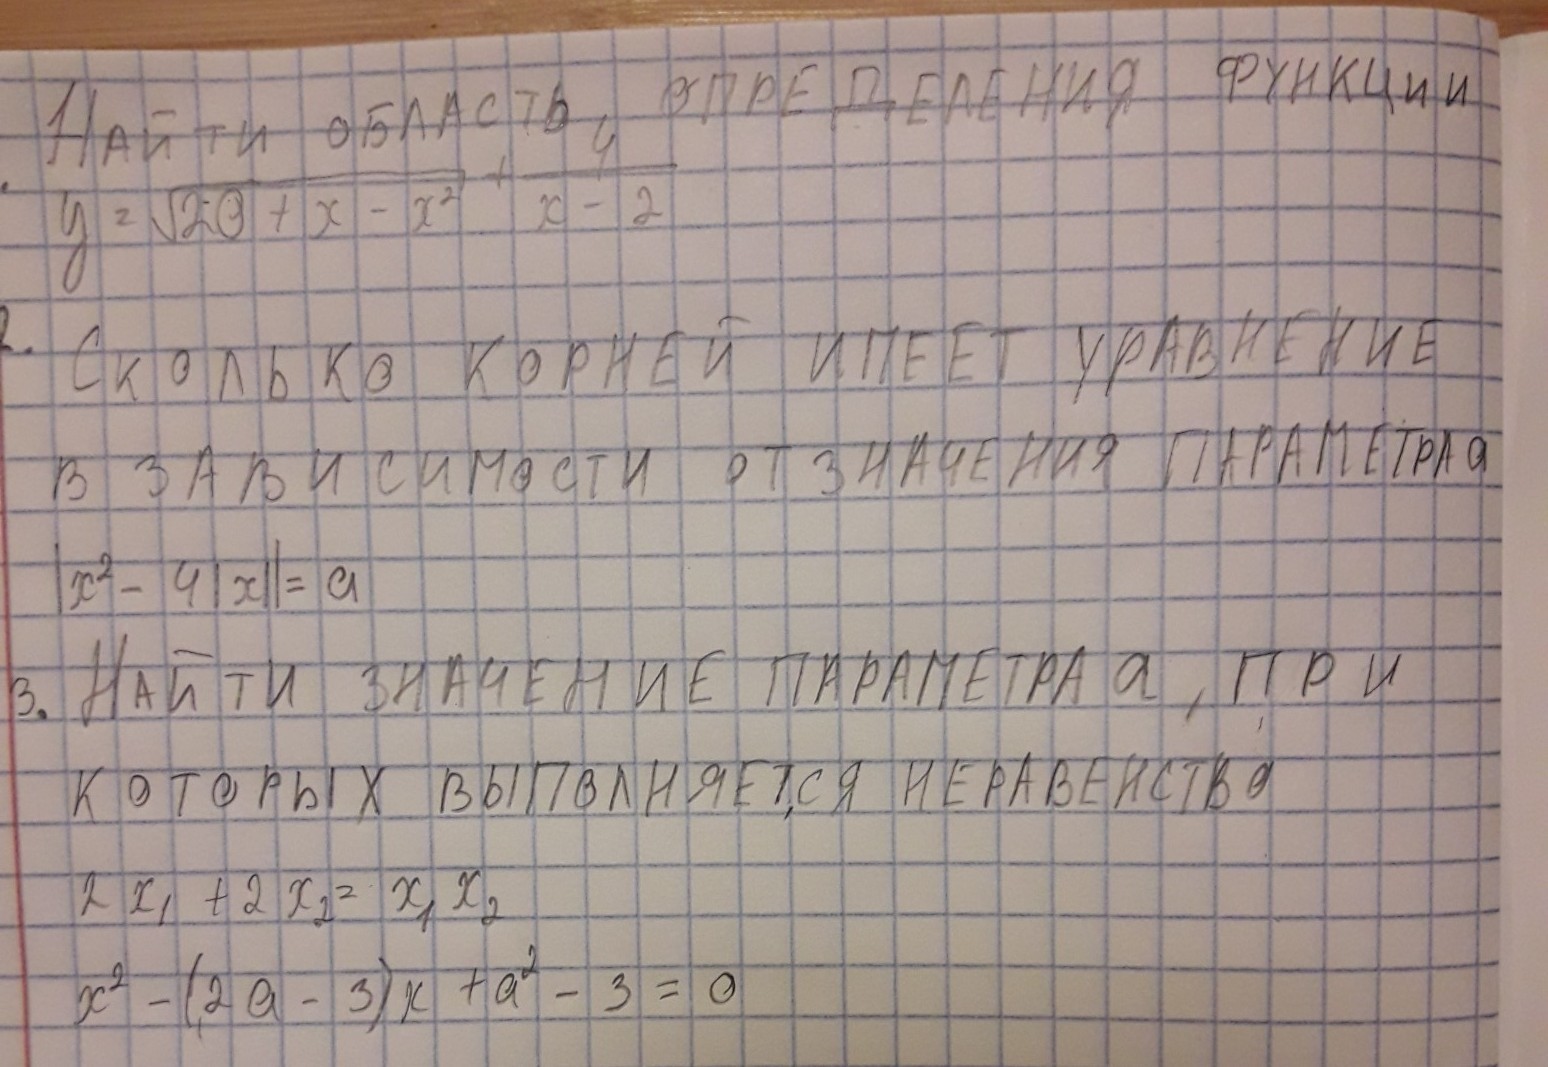 1. Найти область определения функции
y = √20 + x - x² + 4/x - 2
2. Сколько корней имеет уравнение
в зависимости от значения параметра а
|x² - 4|x|| = a
3. Найти значение параметра а, при
которых выполняется неравенство
2x₁ + 2x₂ = x₁ x₂
x² - (2a - 3)x + a² - 3 = 0